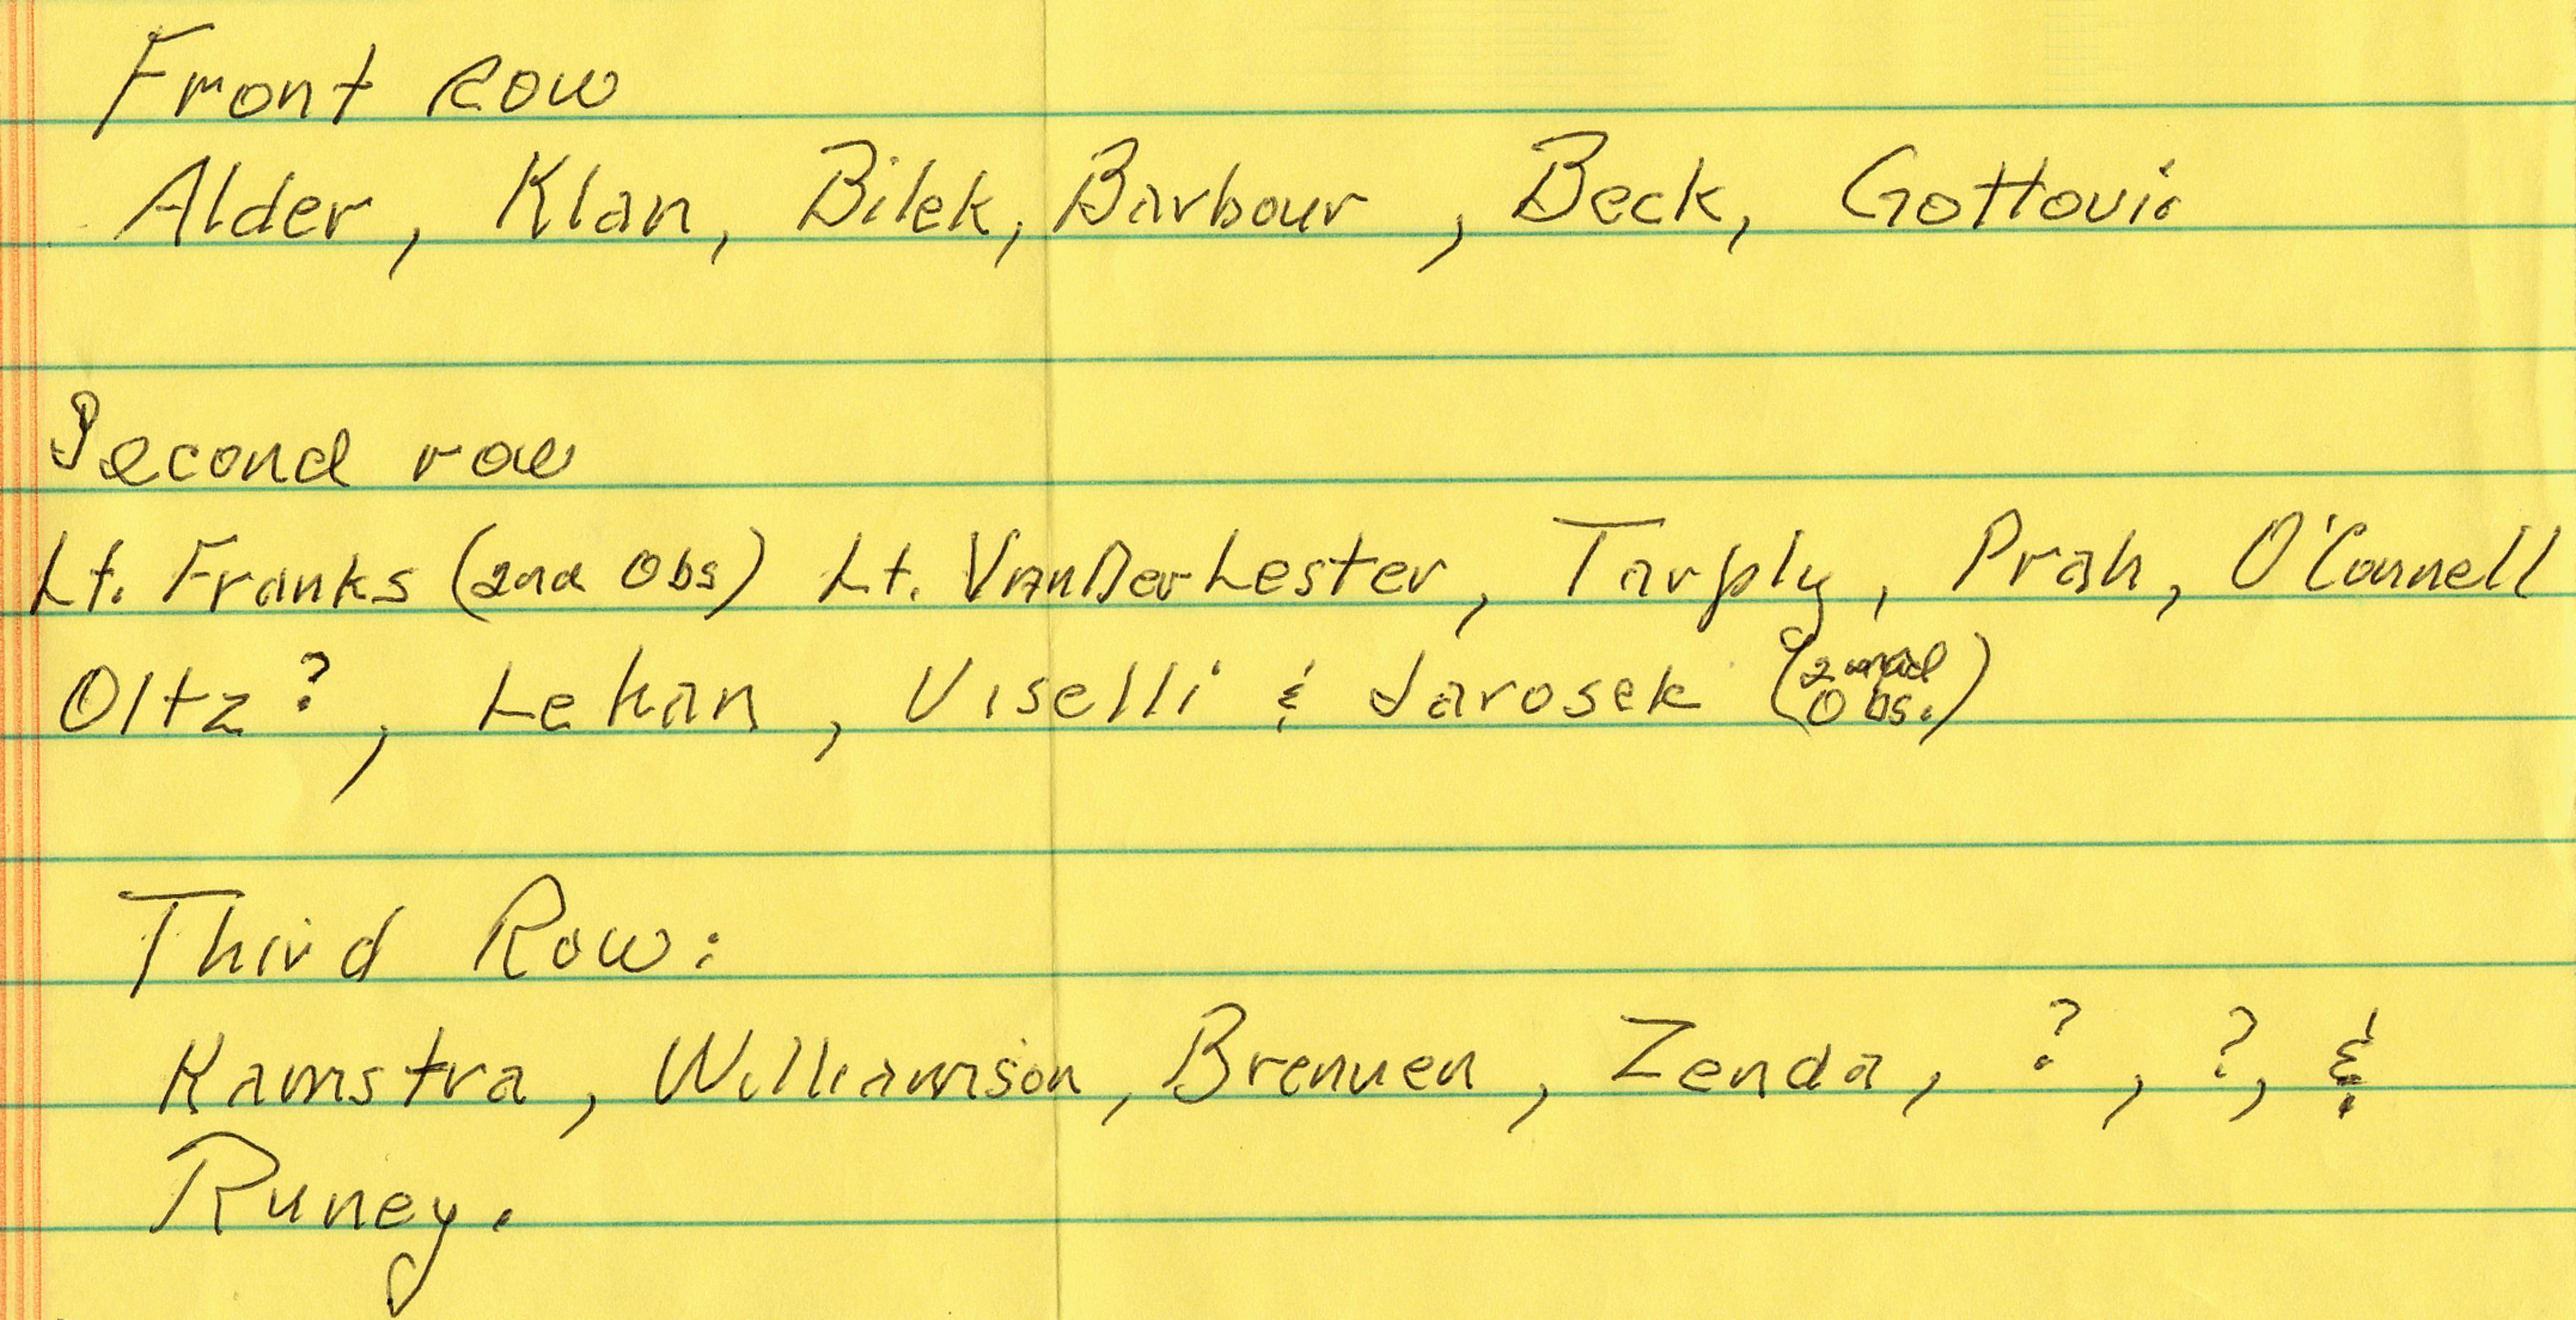 Front Row
Alder, Klan, Bilek, Barbour, Beck, Gottovi
Second row
Lt. Franks (2nd Obs) Lt. VanDerLester, Tarply, Prah, O'Connell
Oltz?, Lehan, Viselli & Jarosek (2nd Obs.)
Third Row:
Kamstra, Williamson, Brennen, Zenda, ?, ?, &
Runey.